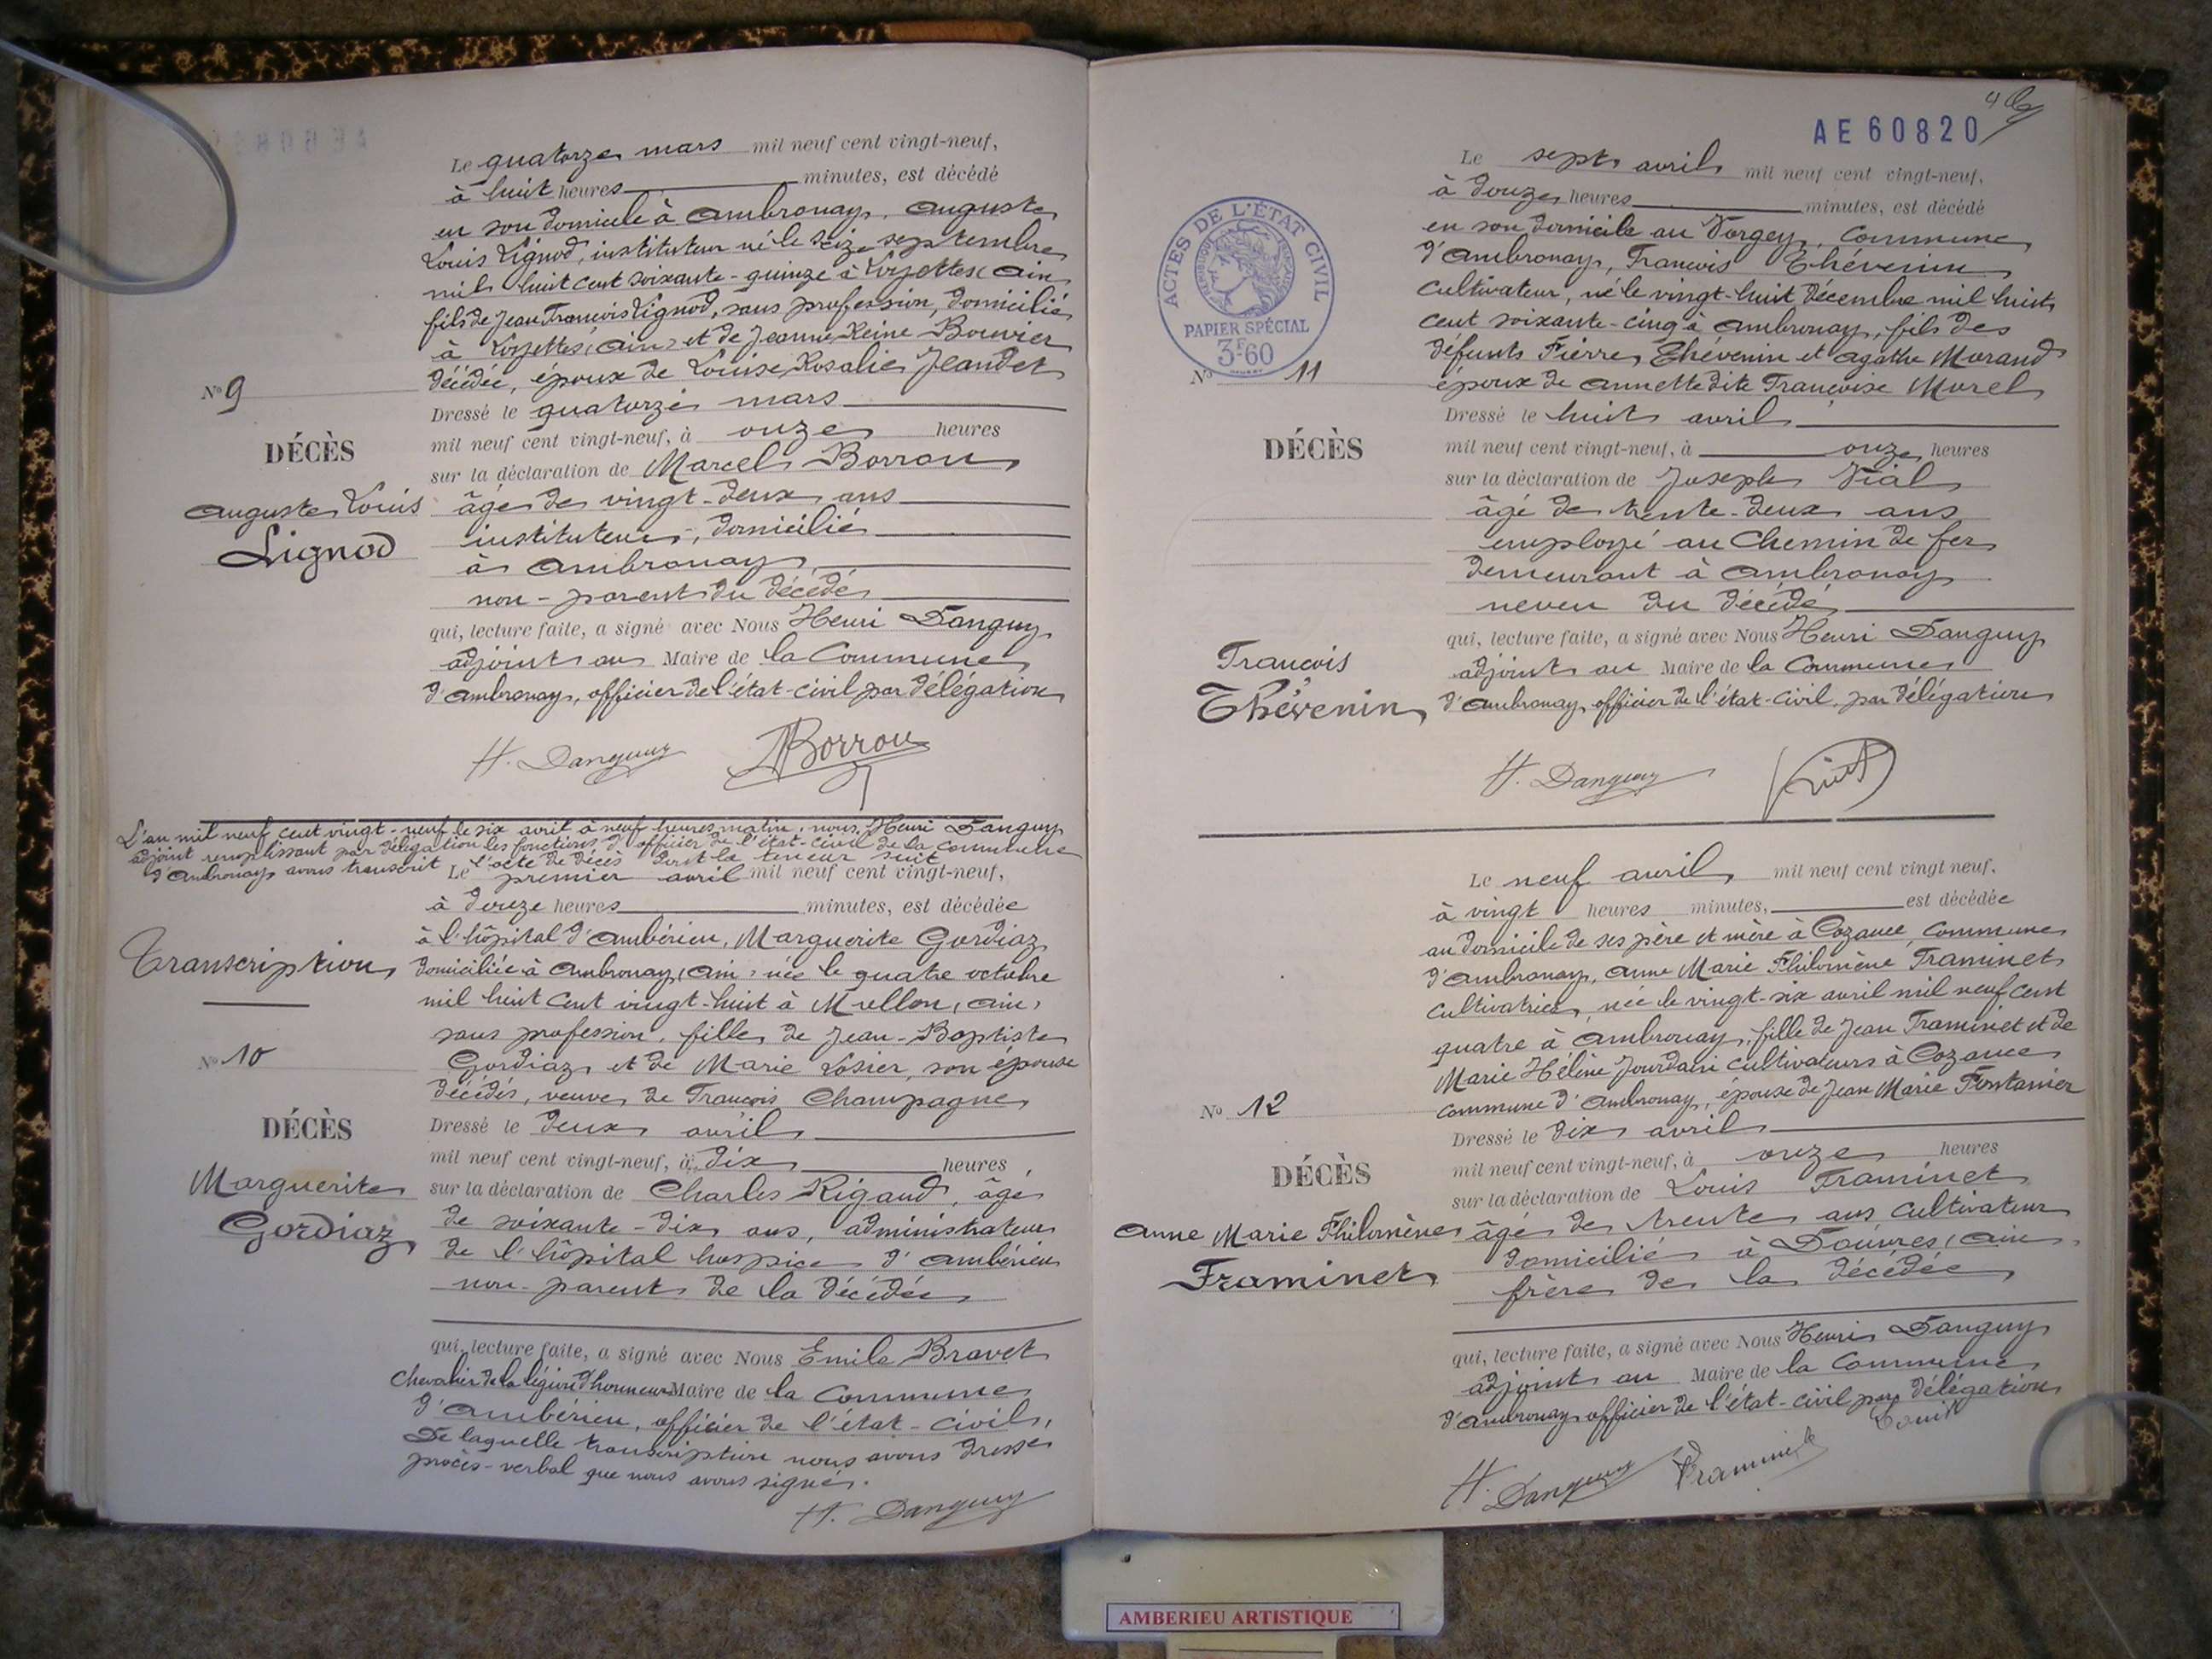 Le quatorze mars mil neuf cent vingt-neuf,
à huit heures minutes, est décédé
en son domicile à Ambronay, Auguste
Louis Lignod, instituteur né le seize septembre
mil huit cent soixante-quinze à Loyettes (Ain)
fils de Jean François Lignod, sans profession, domicilié
à Loyettes (Ain) et de Jeanne Reine Bouvier
décédée, époux de Louise Rosalie Jeandet
Nº 9
Dressé le quatorze mars
mil neuf cent vingt-neuf, à onze heures
DÉCÈS
sur la déclaration de Marcel Borron
Auguste Louis
Lignod
âgé de vingt-deux ans
instituteur, domicilié
à Ambronay
non-parent du décédé
qui, lecture faite, a signé avec Nous Henri Tanguy
adjoint au Maire de la Commune
d'Ambronay, officier de l'état-civil par délégation
H. Danguy Borron
L'an mil neuf cent vingt-neuf le six avril à neuf heures matin, nous, Henri Danguy
adjoint remplissant par délégation les fonctions d'officier de l'état-civil de la commune
d'Ambronay avons transcrit l'acte de décès dont la teneur suit
Le premier avril mil neuf cent vingt-neuf,
à douze heures minutes, est décédée
à l'hôpital d'Ambérieu, Marguerite Gordiaz
Transcription
domiciliée à Ambronay (Ain) née le quatre octobre
mil huit cent vingt-huit à Mollon (Ain)
sans profession, fille de Jean-Baptiste
Nº 10
Gordiaz et de Marie Losier, son épouse
décédés, veuve de François Champagne
DÉCÈS
Dressé le deux avril
mil neuf cent vingt-neuf, à dix heures
Marguerite
Gordiaz
sur la déclaration de Charles Rigaud, âgé
de soixante-dix ans, administrateur
de l'hôpital hospice d'Ambérieu
non-parent de la décédée
qui, lecture faite, a signé avec Nous Emile Bravet
Chevalier de la légion d'honneur Maire de la Commune
d'Ambérieu, officier de l'état-civil,
De laquelle transcription nous avons dressé
procès-verbal que nous avons signé.
H. Danguy
AE 60820
ACTES DE L'ÉTAT CIVIL
PAPIER SPÉCIAL
3F60
Le sept avril mil neuf cent vingt-neuf,
à douze heures minutes, est décédé
en son domicile au Vorgey, Commune
d'Ambronay, François Thévenin
cultivateur, né le vingt-huit décembre mil huit
cent soixante-cinq à Ambronay, fils des
défunts Pierre Thévenin et Agathe Morand
Nº 11
époux de Annette dite Françoise Morel
Dressé le huit avril
DÉCÈS
mil neuf cent vingt-neuf, à onze heures
sur la déclaration de Joseph Vial
âgé de trente-deux ans
employé au Chemin de fer
demeurant à Ambronay
neveu du décédé
François
Thévenin
qui, lecture faite, a signé avec Nous Henri Danguy
adjoint au Maire de la Commune
d'Ambronay, officier de l'état-civil, par délégation
H. Danguy
Le neuf avril mil neuf cent vingt neuf.
à vingt heures minutes, est décédée
au domicile de ses père et mère à Cozance, Commune
d'Ambronay, Anne Marie Philomène Framinet
cultivatrice, née le vingt-six avril mil neuf cent
quatre à Ambronay, fille de Jean Framinet et de
Marie Hélène Jourdain cultivateurs à Cozance
Nº 12
commune d'Ambronay, épouse de Jean Marie Fontanier
Dressé le dix avril
DÉCÈS
mil neuf cent vingt-neuf, à onze heures
sur la déclaration de Louis Framinet
Anne Marie Philomène
Framinet
âgé de trente ans cultivateur
domicilié à Douvres (Ain)
frère de la décédée
qui, lecture faite, a signé avec Nous Henri Danguy
adjoint au Maire de la Commune
d'Ambronay officier de l'état-civil par délégation
H. Danguy Framinet Louis
AMBERIEU ARTISTIQUE